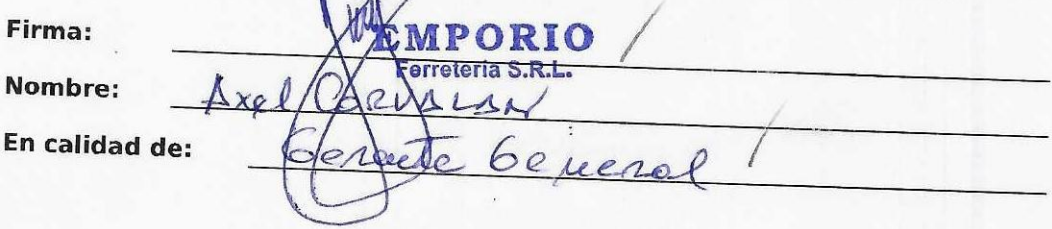 Firma: EMPORIO
Ferreteria S.R.L.
Nombre: Axel CORVALAN
En calidad de: Gerente General